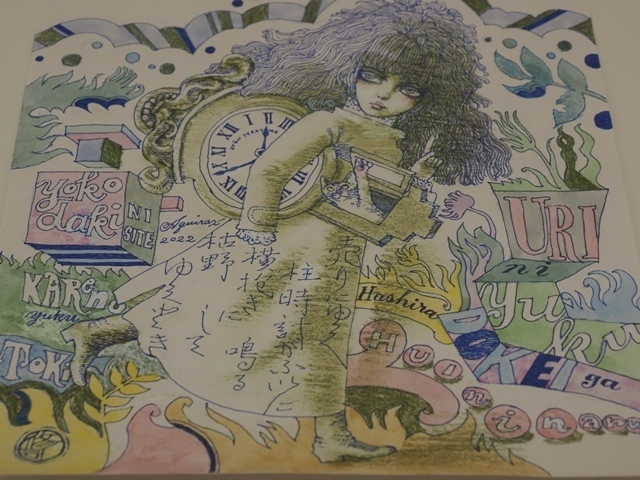 URI
ni
yuku
Hashira
DOKEI
ga
HUI
ni
naru
yoko
daki
NI
SITE
KARENO
yuku
TOKI
Aquirax
2022
売りにゆく
柱時計がふいに
鳴る
横抱きに
して
枯野
ゆくとき